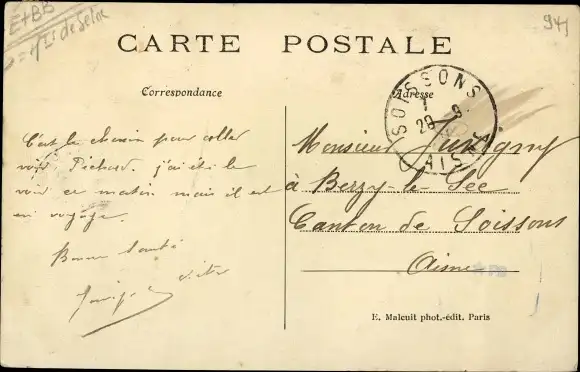 E+BB
CARTE POSTALE
Correspondance
Adresse
SOISSONS
AISNE
C'est le chemin pour aller
voir Pichard. j'ai été le
voir ce matin mais il est
en voyage.
Bonne santé
Monsieur
à Berzy-le-Sec
Canton de Soissons
Aisne
E. Malcuit phot.-édit. Paris